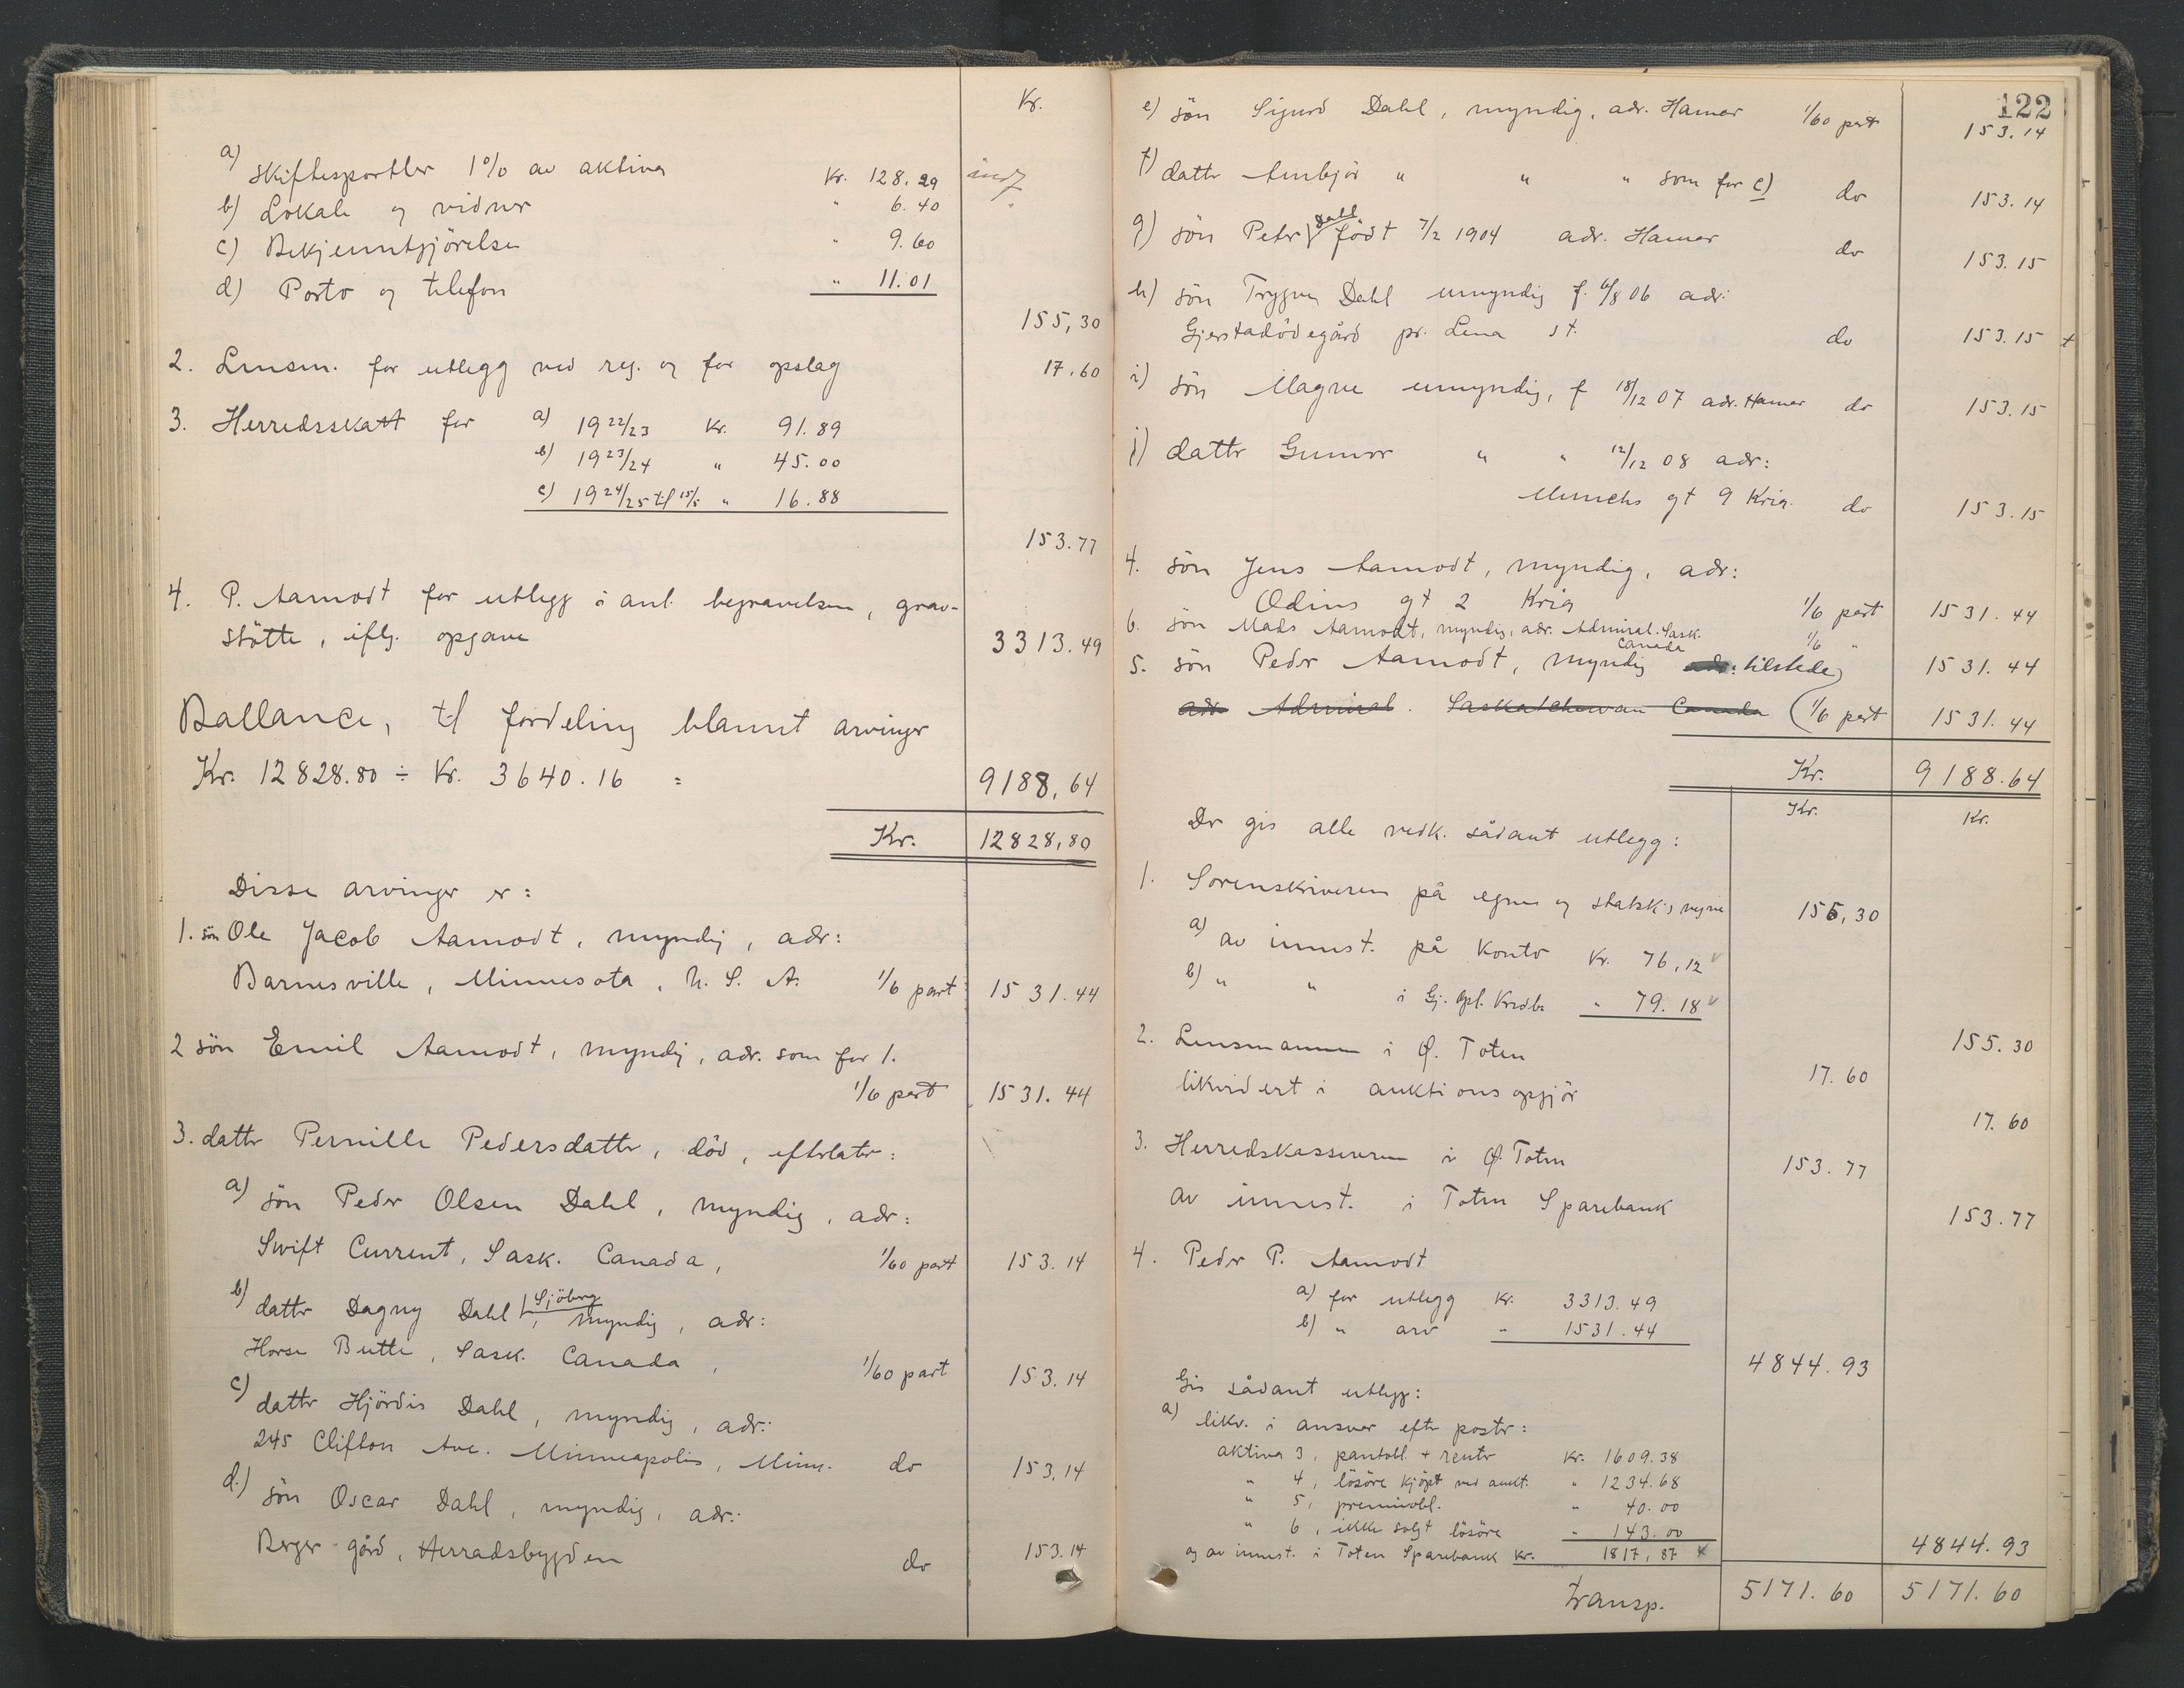 Kr.
a) Skiftesportler 1% av aktiva Kr. 128.29
b) Lokale og vidner " 6.40
c) Bekjenntgjörelse " 9.60
d) Porto og telefon " 11.01
155,30
2. Lensm. for utlegg ved reg. og for opslag 17.60
3. Herredsskatt for a) 19 22/23 Kr. 91.89
b) 19 23/24 " 45.00
c) 19 24/25 til 15/5 " 16.88
153.77
4. P. Aamodt for utlegg i anl. begravelsen, grav-
stötte, iflg. opgave 3313.49
Ballance, til fordeling blannt arvinger
Kr. 12828.80 ÷ Kr. 3640.16 = 9188,64
Kr. 12828,80
Disse arvinger er:
1. sön Ole Jacob Aamodt, myndig, adr:
Barnesville, Minnesota, U. S. A. 1/6 part 1531.44
2 sön Emil Aamodt, myndig, adr. som for 1.
1/6 part 1531.44
3. datter Pernille Pedersdatter, död, efterlater:
a) sön Peder Olsen Dahl, myndig, adr:
Swift Current, Sask. Canada, 1/60 part 153.14
b) datter Dagny Dahl, Sjöberg myndig, adr:
Horse Butte, Sask. Canada, 1/60 part 153.14
c) datter Hjördis Dahl, myndig, adr:
245 Clifton Ave. Minneapolis, Minn. do 153.14
d.) sön Oscar Dahl, myndig, adr:
Berger gård, Herradsbygden do 153.14
122
e) sön Sigurd Dahl, myndig, adr. Hamar 1/60 part 153.14
f) datter Ambjör " " " som for e) do 153.14
g) sön Peter Dahl födt 7/2 1904 adr. Hamar do 153.15
h) sön Trygve Dahl umyndig f. 6/8 06 adr:
Gjerstadödegård pr. Lena st. do 153.15 +
i) sön Magne umyndig, f 18/12 07 adr. Hamar do 153.15
j) datter Gunvor " " 12/12 08 adr:
Munchs gt 9 Kria. do 153.15
4. sön Jens Aamodt, myndig, adr:
Odins gt 2 Kria 1/6 part 1531.44
6. sön Mads Aamodt, myndig, adr. Admiral. Sask. Canada 1/6 "
5. sön Peder Aamodt, myndig adr: tilstede 1531.44
adr. Admiral. Saskatchewan Canada 1/6 part 1531.44
Kr. 9188.64
Kr. Kr.
Der gis alle vedk. sådant utlegg:
1. Sorenskriveren på egne og statsk's vegne 155,30
a) av innest. på Konto Kr. 76,12
b) " " i Gj. Opl. Kredb. " 79.18
155.30
2. Lensmannen i Ø. Toten 17.60
likvidert i auktionsopgjör
17.60
3. Herredskassereren i Ø. Toten 153.77
av innest. i Toten Sparebank
153.77
4. Peder P. Aamodt
a) for utlegg Kr. 3313.49
b) " arv " 1531.44
4844.93
Gis sådant utlegg:
a) likv. i ansvar efter poster:
aktiva 3, pantobl. + renter Kr. 1609.38
" 4, lösöre kjöpt ved aukt. " 1234.68
" 5, premieobl. " 40.00
" 6, ikke solgt lösöre " 143.00
og av innest. i Toten Sparebank Kr. 1817,87 4844.93
transp. 5171.60 5171.60